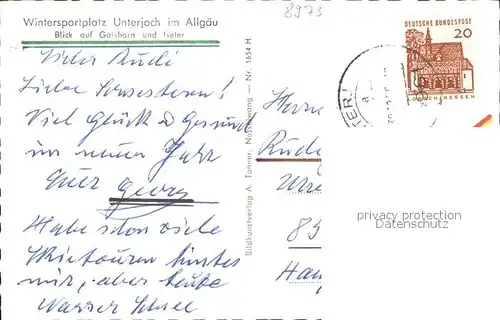 8973
Wintersportplatz Unterjoch im Allgäu
Blick auf Gaishorn und Iseler
Lieber Rudi
Liebe Schwestern!
Viel Glück & Gesund
im neuen Jahr
Euer Georg
Habe schon viele
Skietouren hinter
mir, aber heute
Nasser Schnee
Bildkunstverlag A. Tanner, Nesselwang — Nr. 1654 H
DEUTSCHE BUNDESPOST
20
LORSCH/HESSEN
Herrn
Rud
89
Han
privacy protection
Datenschutz